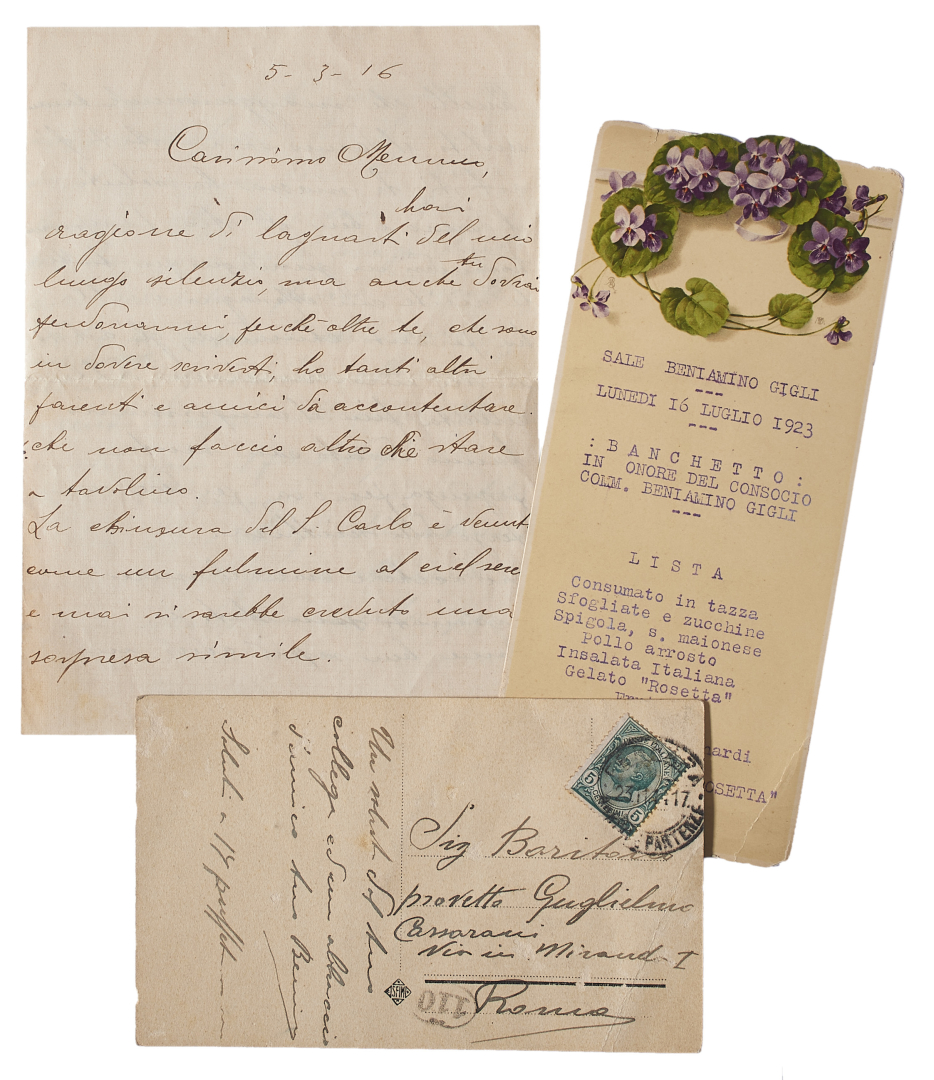 5-3-16
Carissimo Memmo,
hai
ragione di lagnarti del mio
lungo silenzio, ma anche tu dovrai
perdonarmi, perchè oltre te, che sono
in dovere scriverti, ho tanti altri
parenti e amici da accontentare.
che non faccio altro che stare
a tavolino.
La chiusura del S. Carlo è
come un fulmine al ciel
e mai si sarebbe creduto una
sorpresa simile.
SALE BENIAMINO GIGLI
---
LUNEDI 16 LUGLIO 1923
---
: B A N C H E T T O :
IN ONORE DEL CONSOCIO
COMM. BENIAMINO GIGLI
---
L I S T A
Consumato in tazza
Sfogliate e zucchine
Spigola, s. maionese
Pollo arrosto
Insalata Italiana
Gelato "Rosetta"
ardi
OSETTA"
Un saluto dal tuo
collega ed un abbraccio
d'amico tuo
Saluti a
5 5
17
PARTENZE
Sig Baritono
provetto Guglielmo
Cassarani
Via in Miranda I
Roma
110